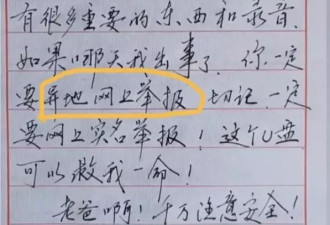 有很多重要的东西和录音.
如果哪天我出事了.你一定
要异地网上举报 切记.一定
要网上实名举报！这个U盘
可以救我一命！
老爸啊！千万注意安全！